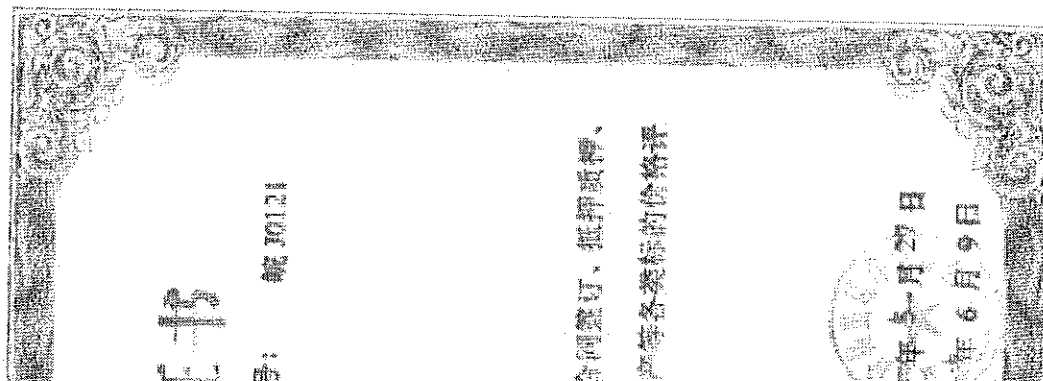 书
号： 皖 J0121
同签订、抵押质押、
产等各类标的价格评
年 月 27 日
年 6 月 9 日